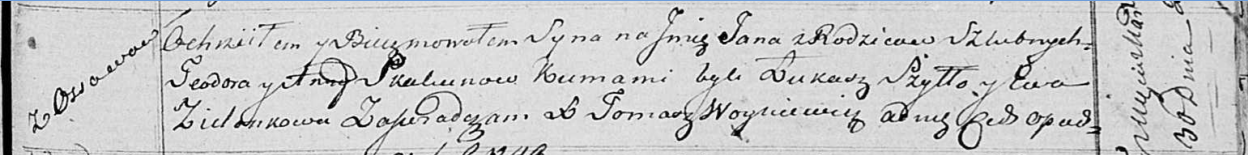 z Ossowa
Ochrzciłem y Bierzmowałem Syna na Jmię Jana z Rodziców Szlubnych
Teodora y Anny Skakunow Kumami byli Łukasz Szyłło y Ewa
Zielonkowa Zaświadczam X Tomasz Woyniewicz
30 Dnia